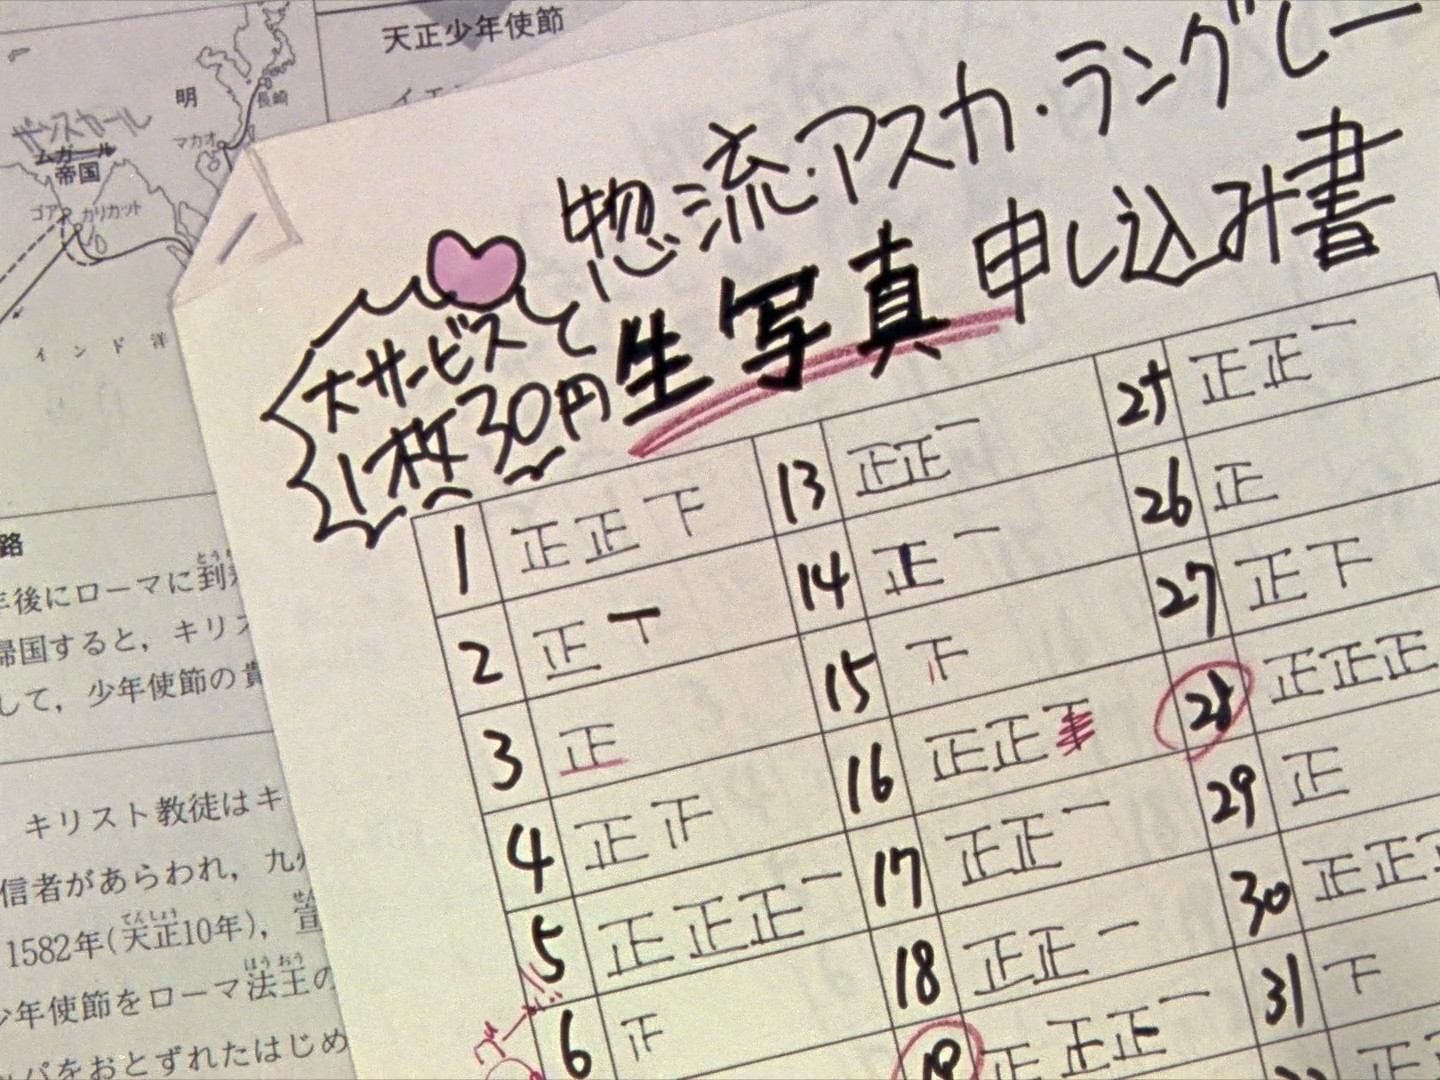 天正少年使節
明
長崎
マカオ
ザンスカール
ムガール
帝国
ゴア
カリカット
インド洋
惣流・アスカ・ラングレー
生写真申し込み書
大サービス
1枚30円
1 正正下
2 正丅
3 正
4 正正
5 正正正一
6 正
13 正正一
14 正一
15 下
16 正正
17 正正一
18 正正一
19 正正正一
25 正正一
26 正
27 正下
28 正正正
29 正
30 正正
31 下
路
年後にローマに到
とう
帰国すると，キリス
して，少年使節の貴
キリスト教徒はキ
信者があらわれ，九州
1582年(天正10年)，宣
てんしょう
少年使節をローマ法王の
ほうおう
をおとずれたはじめ